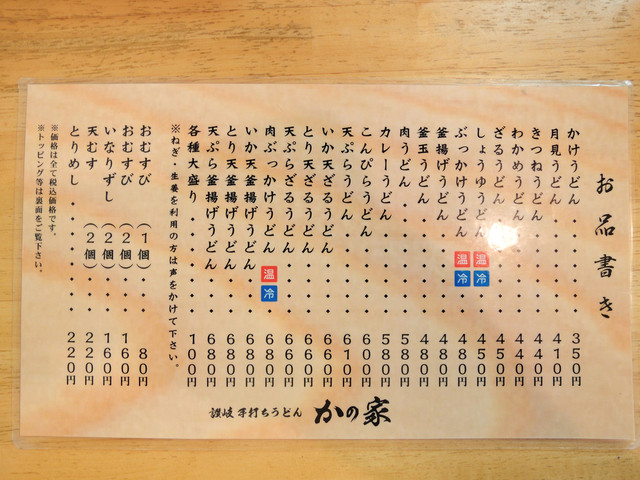 お品書き
かけうどん・・・・・・350円
月見うどん・・・・・・410円
きつねうどん・・・・・440円
わかめうどん・・・・・440円
ざるうどん・・・・・・450円
しょうゆうどん 温 冷・・450円
ぶっかけうどん 温 冷・・480円
釜揚げうどん・・・・・480円
釜玉うどん・・・・・・480円
肉うどん・・・・・・・580円
カレーうどん・・・・・580円
こんぴらうどん・・・・600円
天ぷらうどん・・・・・610円
いか天ざるうどん・・・660円
とり天ざるうどん・・・660円
天ぷらざるうどん・・・680円
肉ぶっかけうどん 温 冷・680円
いか天釜揚げうどん・・680円
とり天釜揚げうどん・・680円
天ぷら釜揚げうどん・・680円
各種大盛り・・・・・・100円
※ねぎ・生姜を利用の方は声をかけて下さい。
おむすび（1個）・・・80円
おむすび（2個）・・・160円
いなりずし（2個）・・160円
天むす（2個）・・・・220円
とりめし・・・・・・・220円
※価格は全て税込価格です。
※トッピング等は裏面をご覧下さい。
讃岐 手打ちうどん かの家